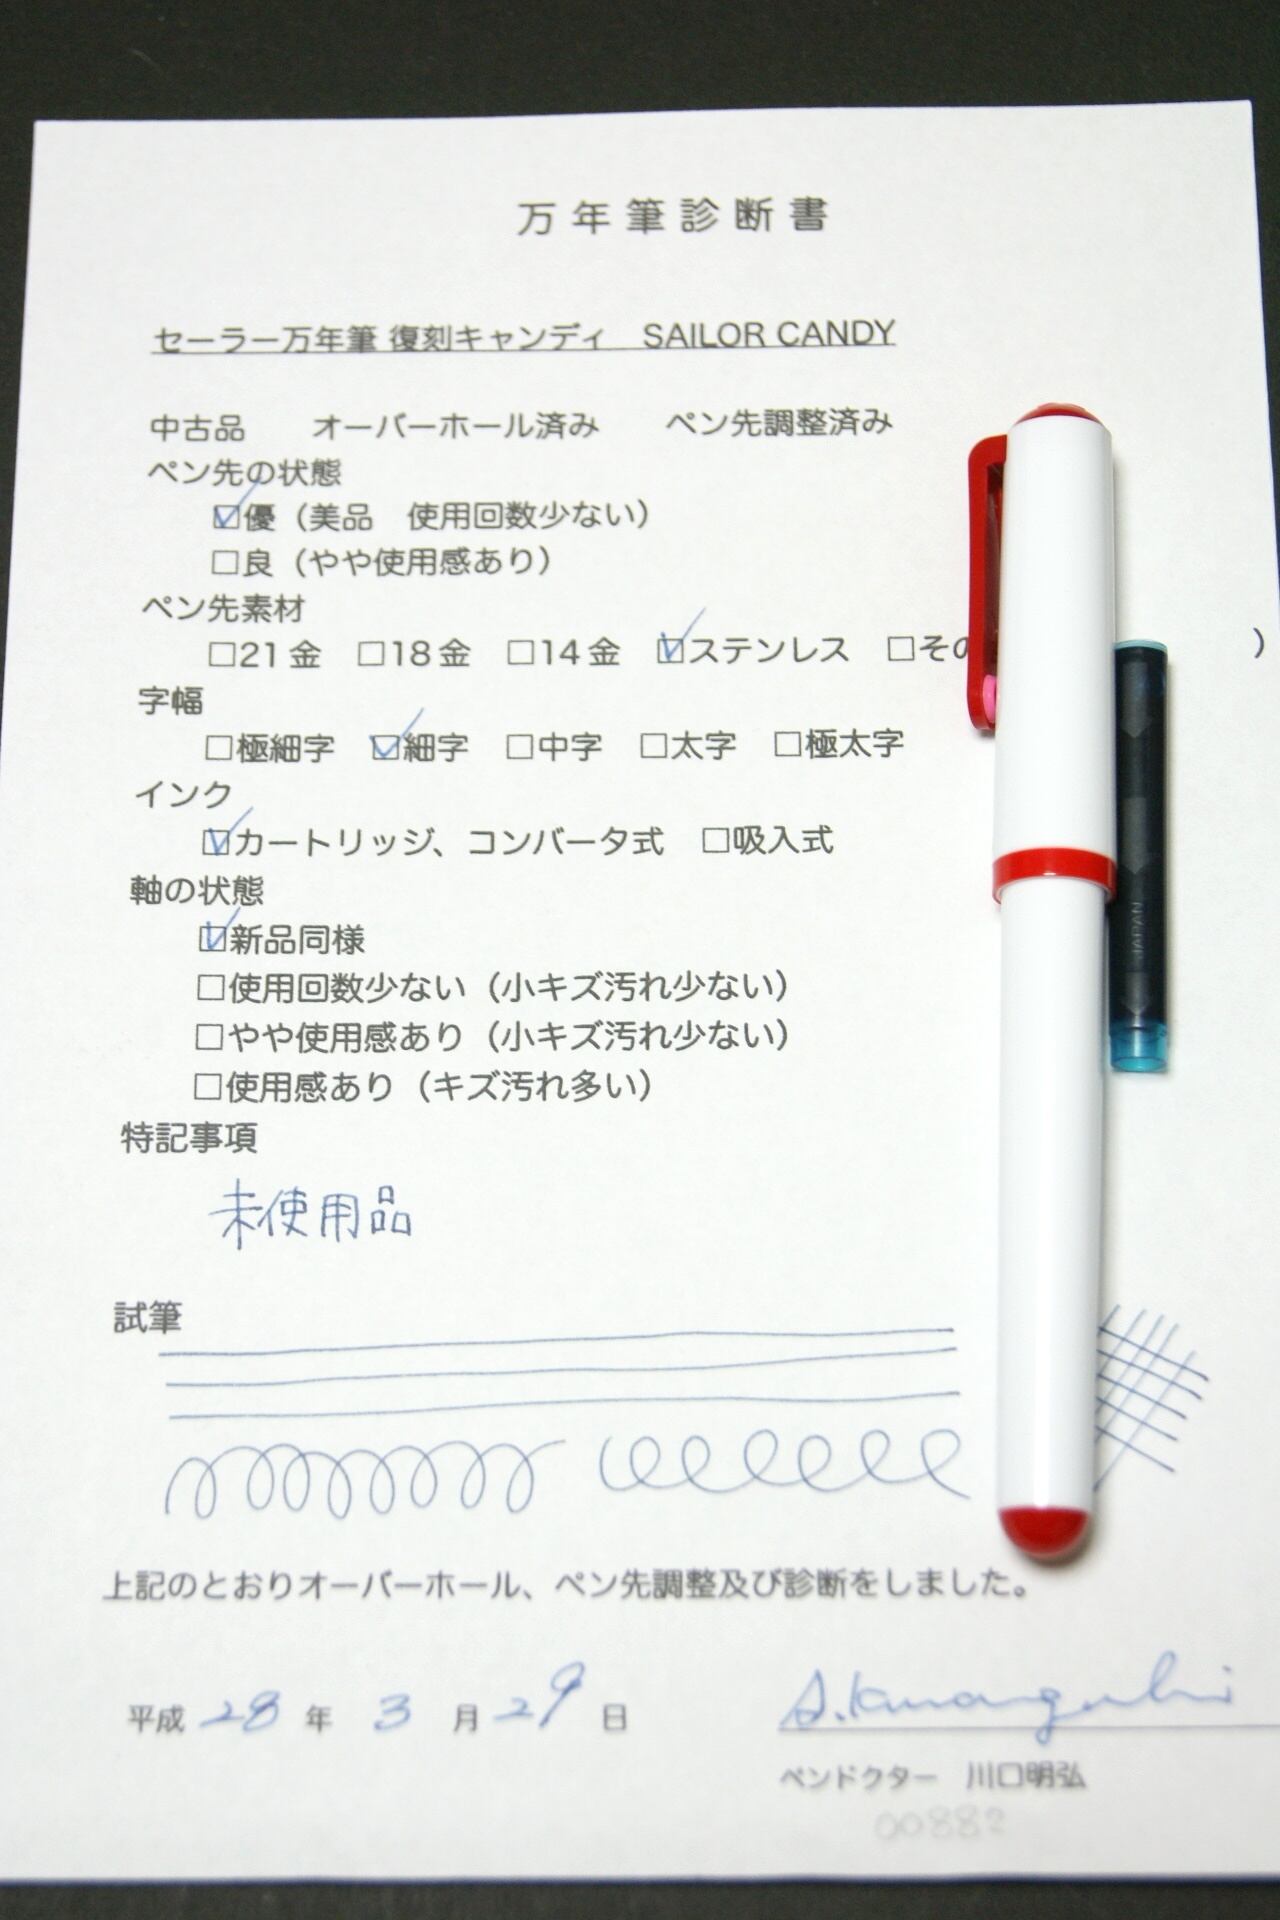 万年筆診断書
セーラー万年筆 復刻キャンディ　SAILOR CANDY
中古品　オーバーホール済み　ペン先調整済み
ペン先の状態
☑優（美品　使用回数少ない）
□良（やや使用感あり）
ペン先素材
□21金　□18金　□14金　☑ステンレス　□その　）
字幅
□極細字　☑細字　□中字　□太字　□極太字
インク
☑カートリッジ、コンバータ式　□吸入式
軸の状態
☑新品同様
□使用回数少ない（小キズ汚れ少ない）
□やや使用感あり（小キズ汚れ少ない）
□使用感あり（キズ汚れ多い）
特記事項
未使用品
試筆
上記のとおりオーバーホール、ペン先調整及び診断をしました。
平成 28 年 3 月 29 日
A.Kawaguchi
ペンドクター　川口明弘
00882
JAPAN